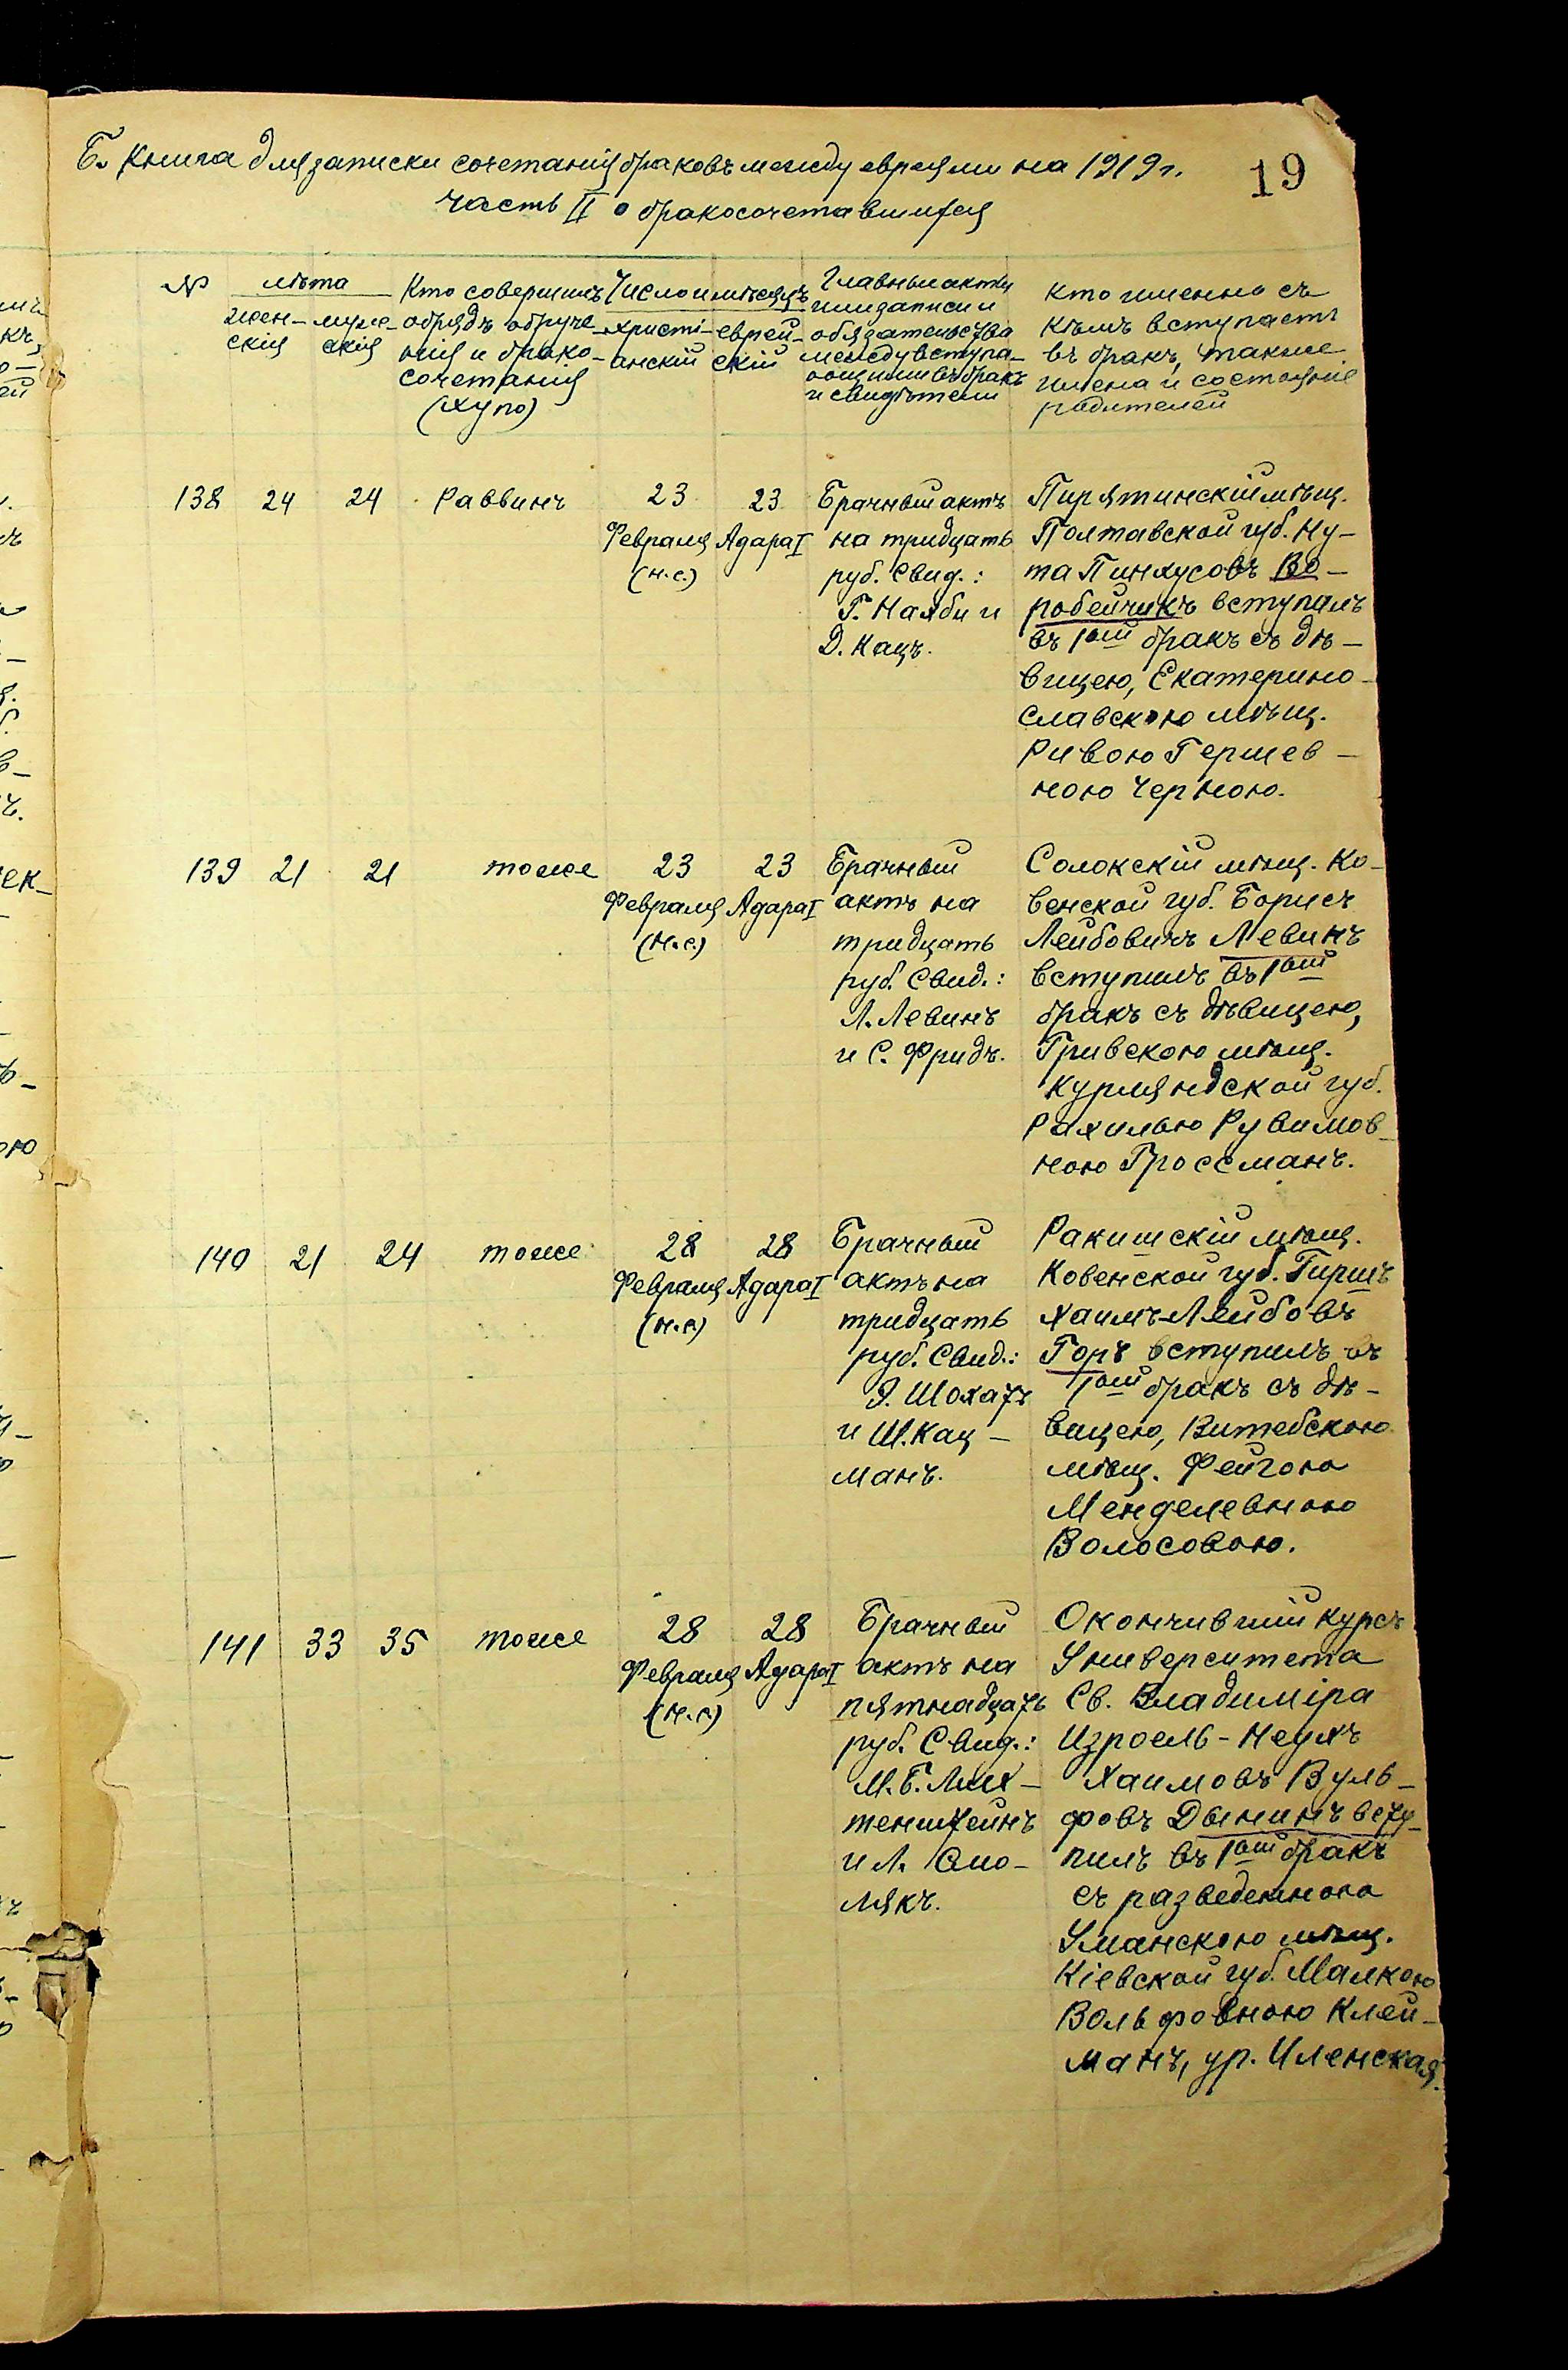 Б. Книга для записки сочетанія браковъ между евреями на 1919 г.
19
часть II о бракосочетавшихся
№
лѣта
жен-
скія
муж-
скія
Кто совершилъ
обрядъ обруче-
нія и брако-
сочетанія
(хупо)
Число и мѣсяцъ
христі-
анскій
еврей-
скій
Главные акты
или записи и
обязательства
между вступа-
ющими въ бракъ
и свидѣтели
Кто именно съ
кѣмъ вступаетъ
въ бракъ, также
имена и состояніе
родителей
138
24
24
Раввинъ
23
Февраля
(н.с.)
23
Адара I
Брачный актъ
на тридцать
руб. Свид.:
Г. Наяби и
Д. Кацъ.
Пирятинскій мѣщ.
Полтавской губ. Ну-
та Пинхусовъ Во-
робейчикъ вступилъ
въ 1ый бракъ съ дѣ-
вицею, Екатерино-
славскою мѣщ.
Ривою Гершев-
ною Черною.
139
21
21
тоже
23
Февраля
(н.с.)
23
Адара I
Брачный
актъ на
тридцать
руб. Свид.:
Л. Левинъ
и С. Фридъ.
Солокскій мѣщ. Ко-
венской губ. Борисъ
Лейбовичъ Левинъ
вступилъ въ 1ый
бракъ съ дѣвицею,
Гривскою мѣщ.
Курляндской губ.
Рахилью Рувимов-
ною Гроссманъ.
140
21
24
тоже
28
Февраля
(н.с.)
28
Адара I
Брачный
актъ на
тридцать
руб. Свид.:
Я. Шохатъ
и Ш. Кац-
манъ.
Ракишскій мѣщ.
Ковенской губ. Гиршъ
Хаимъ Лейбовъ
Горъ вступилъ въ
1ый бракъ съ дѣ-
вицею, Витебскою
мѣщ. Фейгою
Менделевною
Волосовою.
141
33
35
тоже
28
Февраля
(н.с.)
28
Адара I
Брачный
актъ на
пятнадцать
руб. Свид.:
М. Б. Лих-
тенштейнъ
и Л. Смо-
лякъ.
Окончившій курсъ
Университета
Св. Владиміра
Изроель-Неухъ
Хаимовъ Вуль-
фовъ Дынинъ всту-
пилъ въ 1ый бракъ
съ разведенною
Уманскою мѣщ.
Кіевской губ. Малкою
Вольфовною Клей-
манъ, ур. Иленская.